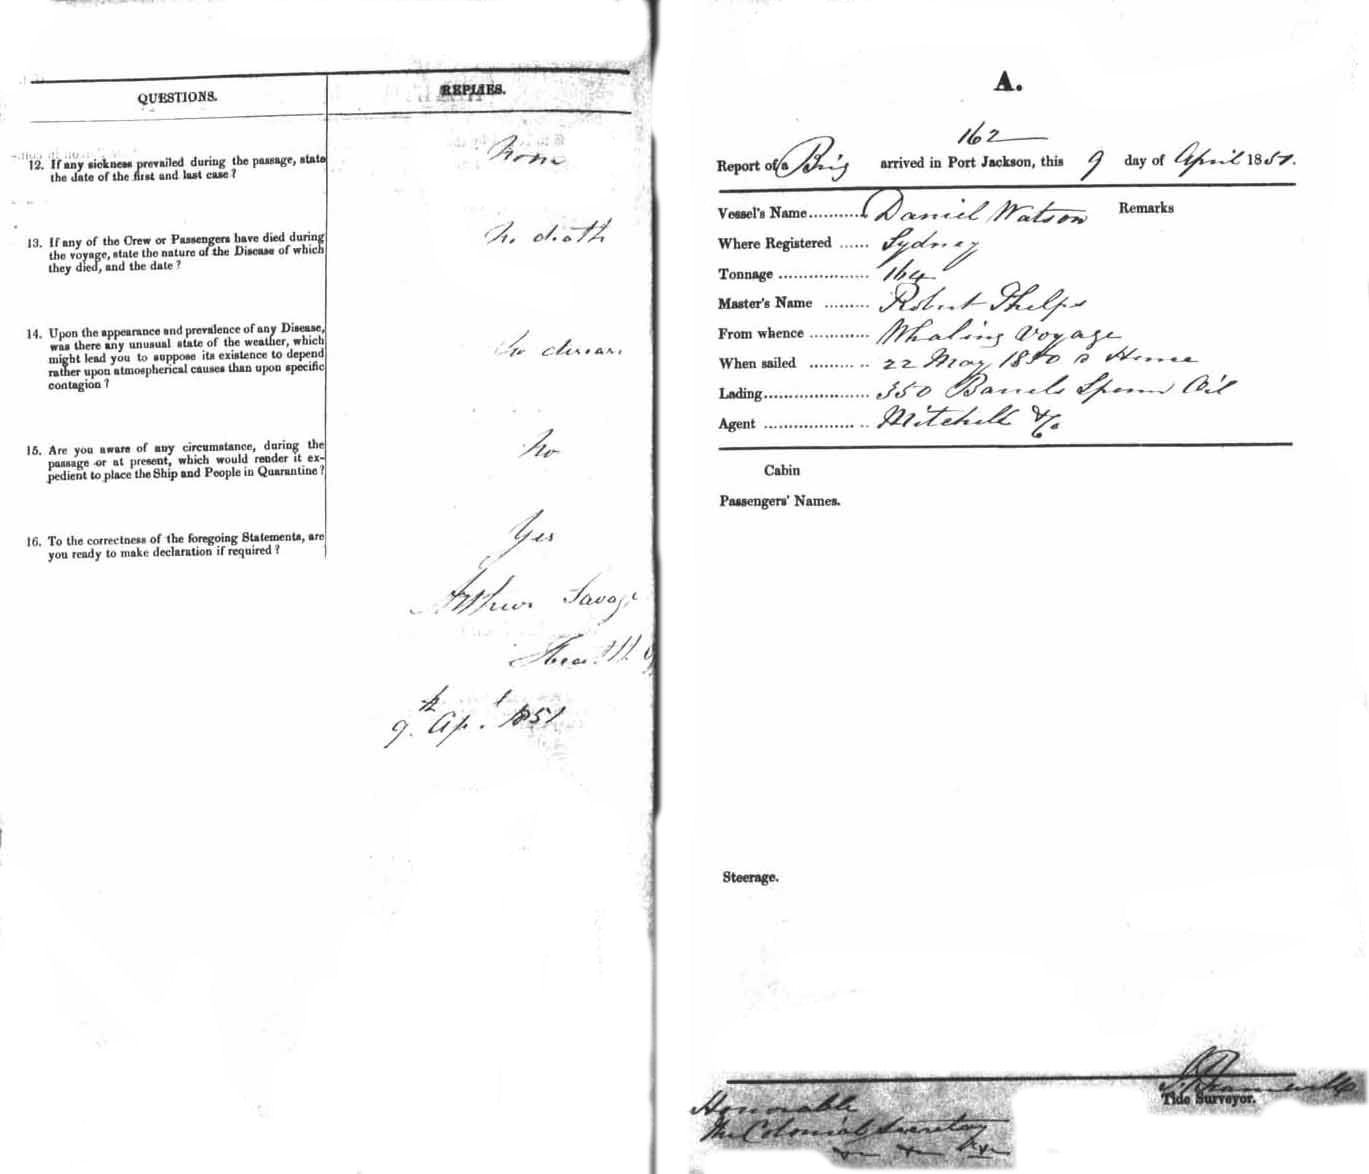 QUESTIONS.
REPLIES.
12. If any sickness prevailed during the passage, state
the date of the first and last case?
None
13. If any of the Crew or Passengers have died during
the voyage, state the nature of the Disease of which
they died, and the date?
No death
14. Upon the appearance and prevalence of any Disease,
was there any unusual state of the weather, which
might lead you to suppose its existence to depend
rather upon atmospherical causes than upon specific
contagion?
No disease
15. Are you aware of any circumstance, during the
passage or at present, which would render it ex-
pedient to place the Ship and People in Quarantine?
No
16. To the correctness of the foregoing Statements, are
you ready to make declaration if required?
Yes
Arthur Savage
9th Apl 1851
A.
162
Report of a Brig arrived in Port Jackson, this 9 day of April 1851.
Vessel's Name........... Daniel Watson Remarks
Where Registered ...... Sydney
Tonnage .................. 164
Master's Name ......... Robert Phelps
From whence ............ Whaling Voyage
When sailed ......... .. 22 May 1850 Hence
Lading..................... 350 Barrels Sperm Oil
Agent ................... .. Mitchell & Co
Cabin
Passengers' Names.
Steerage.
Tide Surveyor.
Honorable
The Colonial Secretary